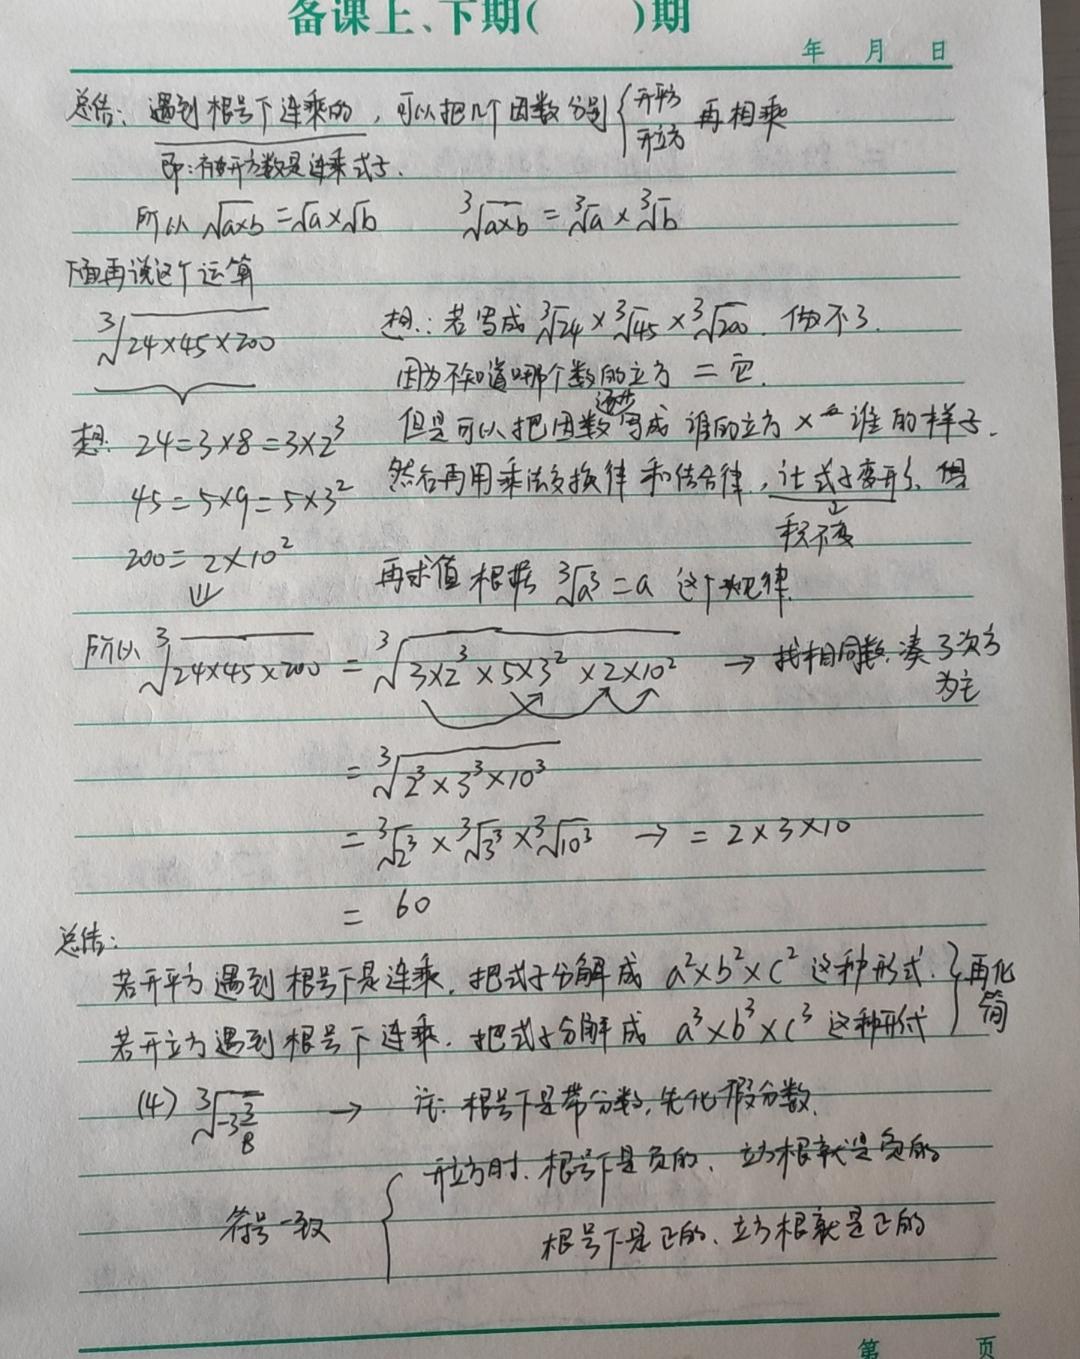 备课上、下期(　　)期
年 月 日
总结: 遇到根号下连乘的, 可以把几个因数分别{开平方 开立方 再相乘
即:被开方数是连乘式子.
所以 √(a×b) = √a×√b　　∛(a×b) = ∛a × ∛b
下面再说这个运算
∛(24×45×200)　　想: 若写成 ∛24 × ∛45 × ∛200. 做不了.
因为不知道哪个数的立方 = 它.
想: 24=3×8=3×2³　　但是可以把因数逐步写成 谁的立方 × 谁 的样子.
45=5×9=5×3²　　然后再用乘法交换律 和结合律, 让式子变形, 但
积不变
200= 2×10²　　再求值 根据 ∛a³ = a 这个规律.
⇓
所以 ∛(24×45×200) = ∛(3×2³×5×3²×2×10²) → 找相同数, 凑 3次方
为主
= ∛(2³×3³×10³)
= ∛2³ × ∛3³ × ∛10³ → = 2×3×10
= 60
总结:
若开平方 遇到 根号下是连乘, 把式子分解成 a²×b²×c² 这种形式. } 再化简
若开立方遇到 根号下 连乘. 把式子分解成 a³×b³×c³ 这种形式
(4) ∛(-3 3/8) → 注: 根号下是带分数, 先化假分数.
开立方时. 根号下是负的、立方根就是负的
符号一致 {
根号下是正的、立方根就是正的
第 页